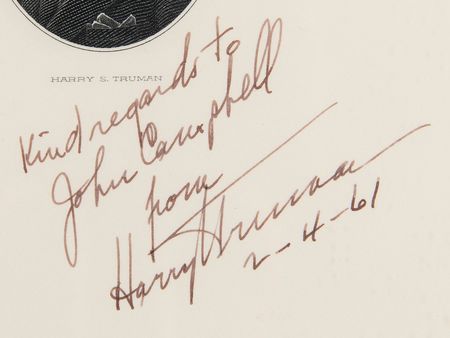 HARRY S. TRUMAN
Kind regards to
John Campbell
from
Harry Truman
2-4-61